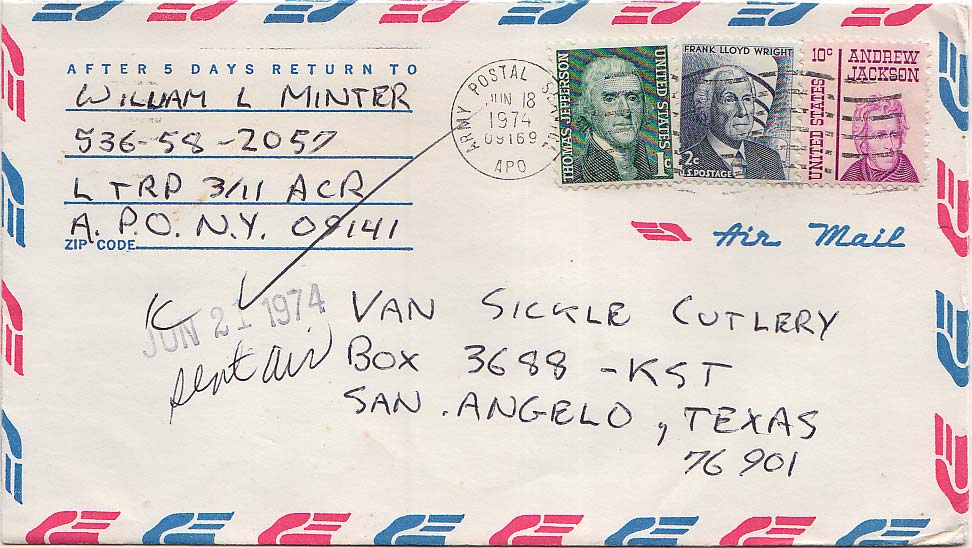 AFTER 5 DAYS RETURN TO
WILLIAM L MINTER
536-58-2057
L TRP 3/11 ACR
A.P.O. N.Y. 09141
ZIP CODE
ARMY POSTAL
JUN 18
1974
09169
APO
THOMAS JEFFERSON
UNITED STATES
1c
FRANK LLOYD WRIGHT
2c
U.S. POSTAGE
10c ANDREW
JACKSON
UNITED STATES
Air Mail
JUN 21 1974
sent air
VAN SICKLE CUTLERY
BOX 3688 -KST
SAN. ANGELO, TEXAS
76901